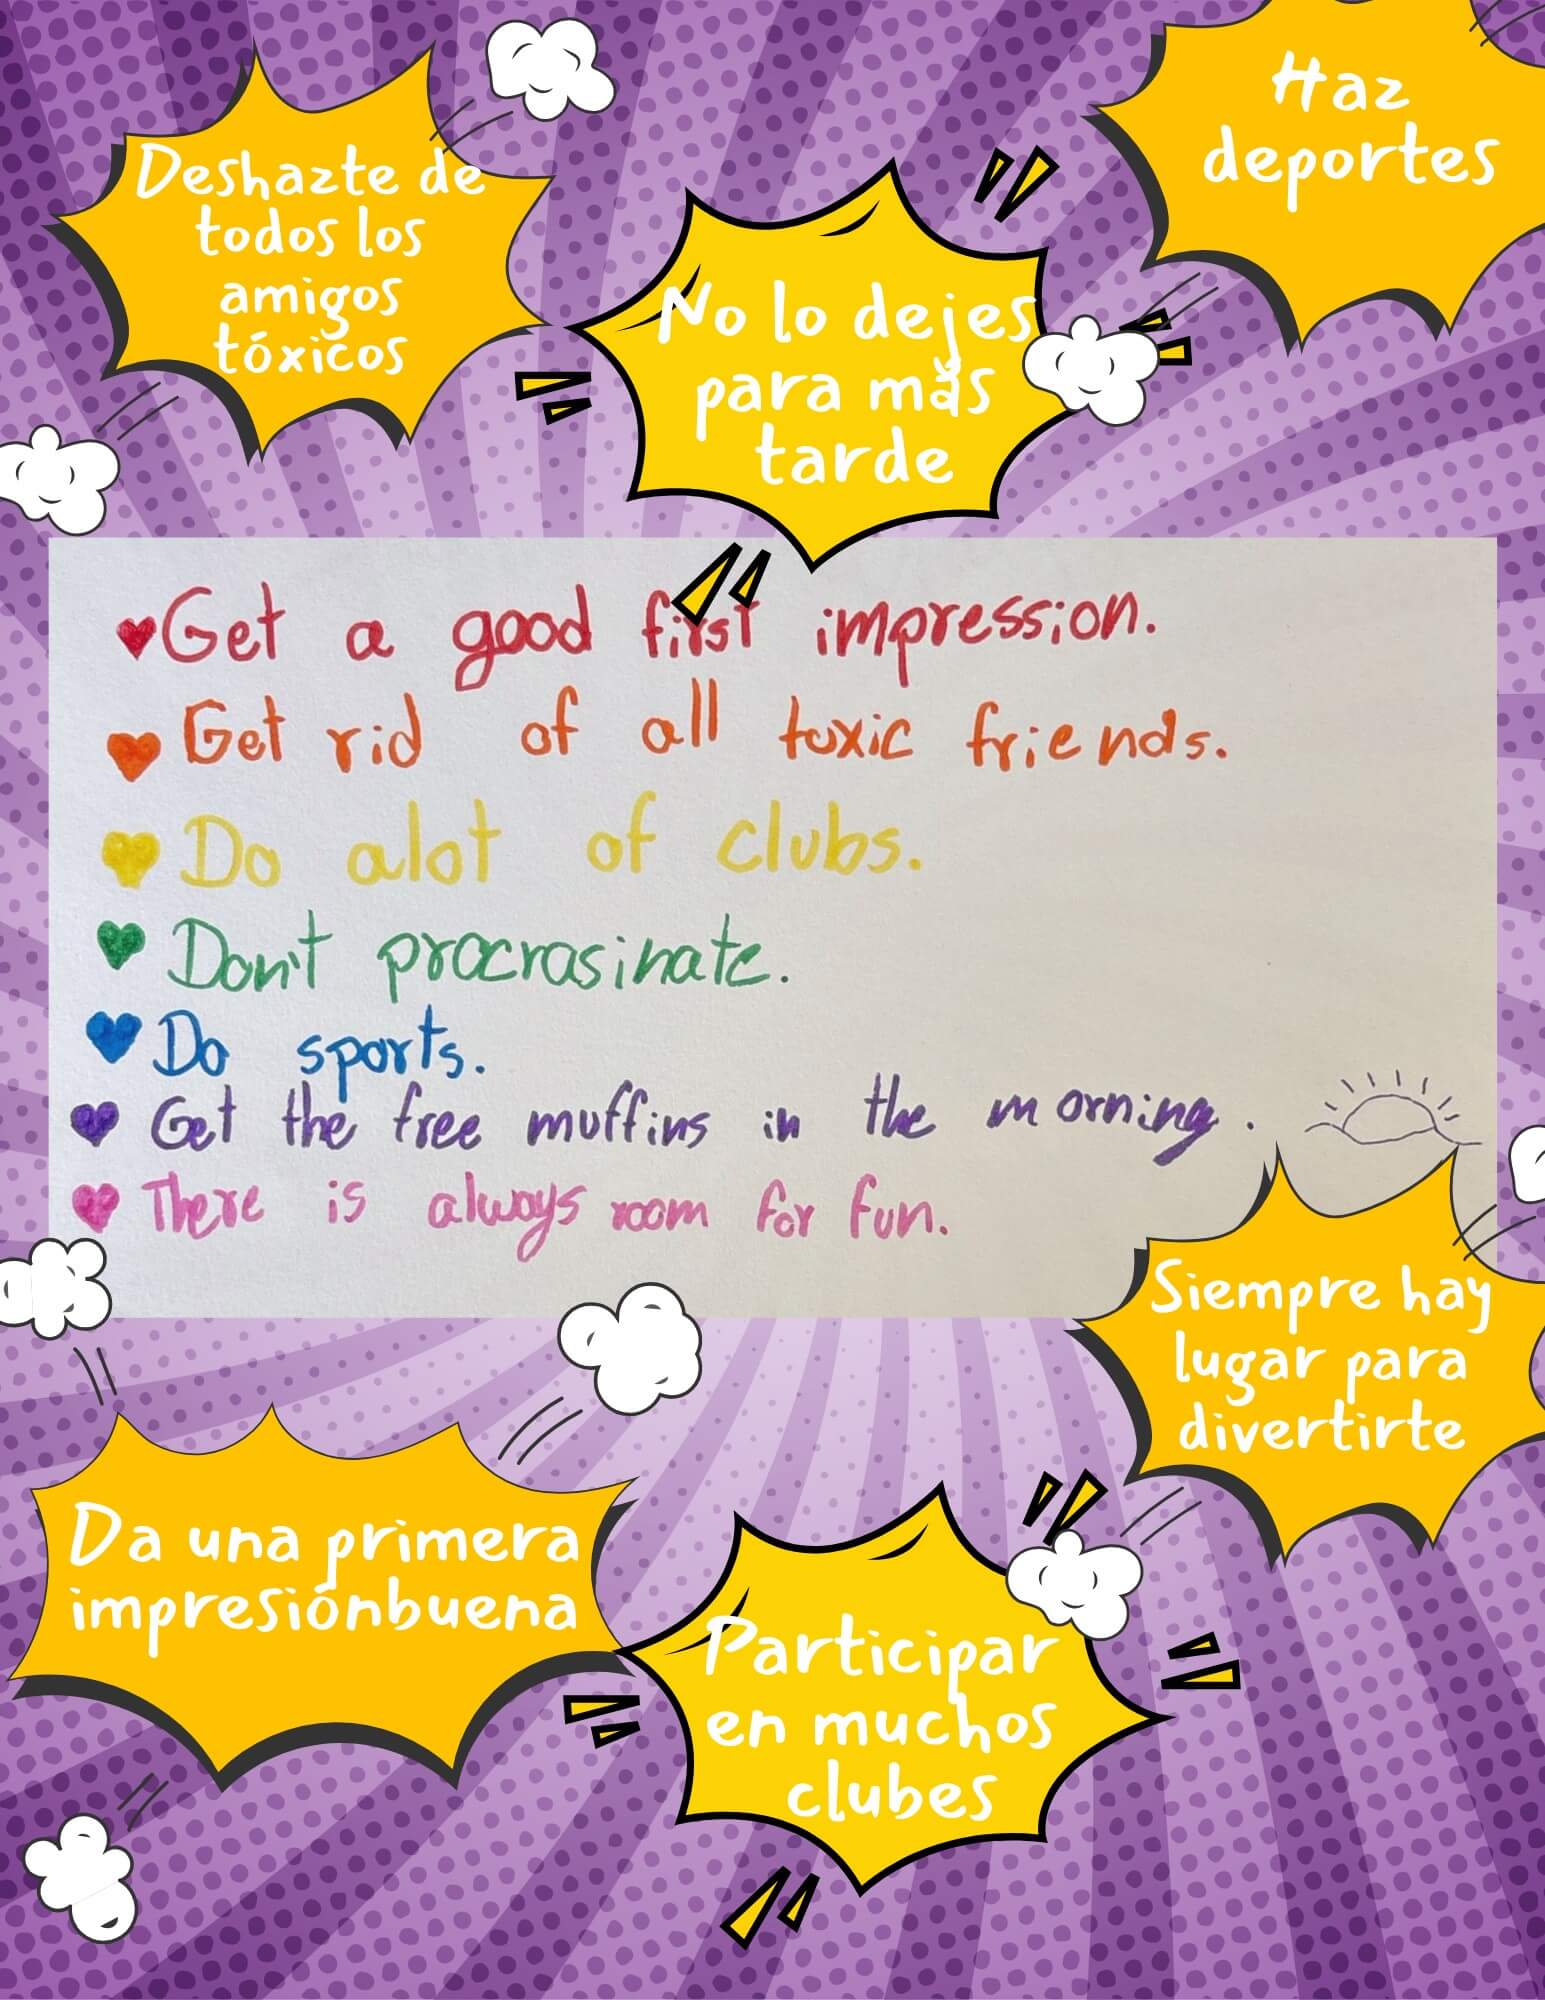 Deshazte de
todos los
amigos
tóxicos
No lo dejes
para más
tarde
Haz
deportes
Get a good first impression.
Get rid of all toxic friends.
Do alot of clubs.
Don't procrasinate.
Do sports.
Get the free muffins in the morning.
There is always room for fun.
Siempre hay
lugar para
divertirte
Da una primera
impresiónbuena
Participar
en muchos
clubes